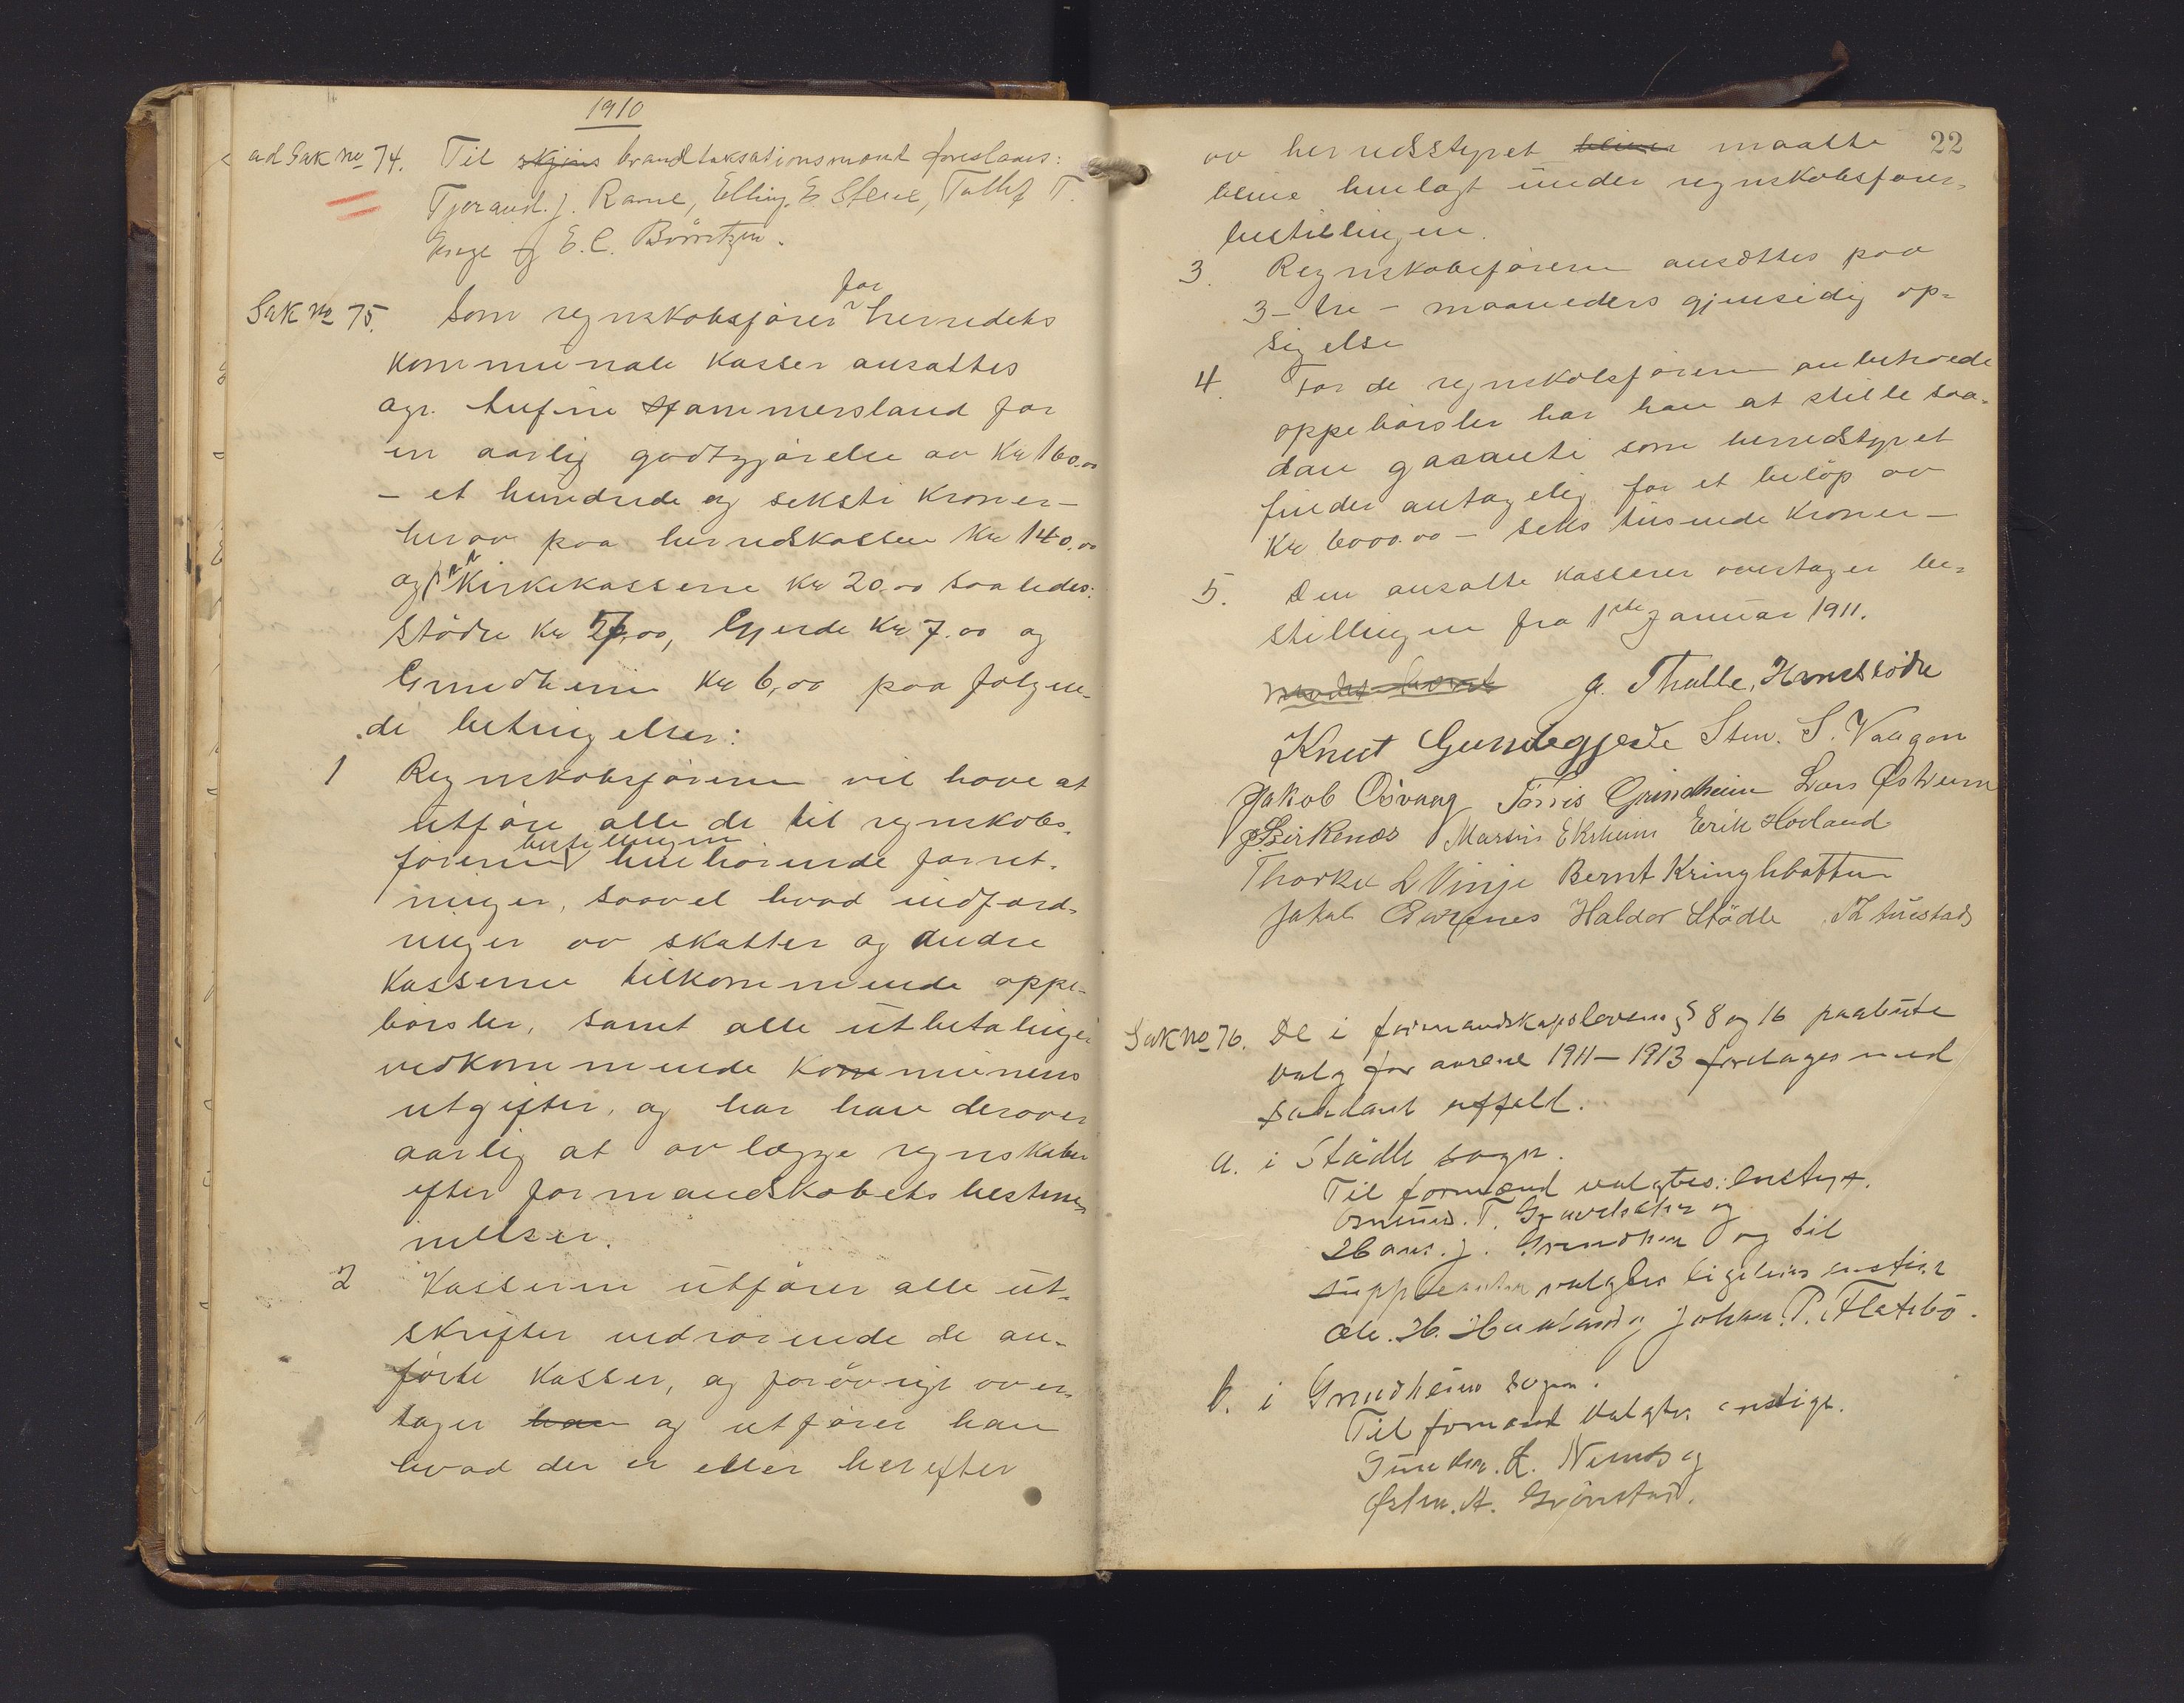 1910
ad Sak no 74. Til skjøns brandtaksationsmænd foreslaaes:
Tjerand. J. Rame, Elling. E. Stene, Tollef T.
Enge og E. C. Börretzen.
Sak no 75. Som regnskobsfører for herredets
kommunale kasser ansattes
agr. Lufine Hammersland for
en aarlig godtgjørelse av Kr 160.00
– et hundrede og seksti kroner –
herav paa herredskassen Kr 140.00
og paa Kirkekasserne Kr 20.00 saaledes:
Stödle Kr 7.00, Gjerde Kr 7.00 og
Grindheim Kr 6,00 paa følgen-
de betingelser:
1 Regnskobsføreren vil have at
utføre alle de til regnskobs-
førerbestillingen henhørende forret-
ninger, saavel hvad indford-
ninger av skatter og andre
Kasserne tilkommende oppe-
børsler, samt alle utbetalinger
vedkommende Kommunens
utgifter, og har han derover
aarlig at avlægge regnskaber
efter formandskabets bestem-
melser.
2 Kasseren utfører alle ut-
skrifter vedrørende de an-
førte Kasser, og forövrigt over-
tager han og utfører han
hvad der er eller herefter
22
av herredsstyret bliver maatte
blive henlagt under regnskobsfører-
bestillingen.
3. Regnskobsføreren ansættes paa
3 – tre – maaneders gjensidig op-
sigelse
4. For de regnskobsføreren anbetroede
oppebørsler har han at stille saa-
dan garanti som herredstyret
finder antagelig for et beløp av
Kr 6000.00 – seks tusende Kroner –
5. Den ansatte kasserer overtager be-
stillingen fra 1ste Januar 1911.
Mødet hævet G. Thalle,
Knut Gundegjerde Sten. S. Vaagen
Jakob Osvaag Tørris Grindheim Lars Østrem
Birkenæs Martin Ekrheim Erik Hovland
Thorkel L Vinje Bernt Kringlebotten
Jakob Haldor Stödle
Sak no 76. De i formandskapslovens § 8 og 16 paabudte
valg for aarene 1911–1913 foretages med
saadant utfald.
a. i Stödle sogn.
Til formænd valgtes: enstem.
Osmund. T. og
Hans. J. Grindheim og til
suppleanter valgtes ligeledes enstige
Ole. H. Johan. P. Flatebö.
b. i Grindheim sogn:
Til formænd valgtes enstige.
Gunder. L. Nernes og
Østen. A. Grönstad.